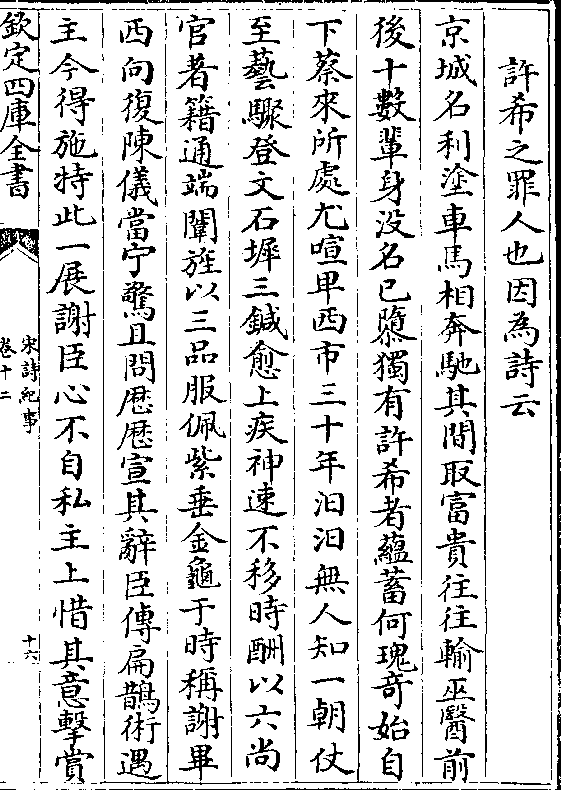 許希之罪人也因為詩云
京城名利塗車馬相奔馳其間取富貴往往輸巫醫前
後十數輩身没名已隳獨有許希者蘊蓄何瑰奇始自
下蔡來所處尤喧卑西市三十年汨汨無人知一朝仗
至藝驟登文石墀三鍼愈上疾神速不移時酬以六尚
官著籍通端闈旌以三品服佩紫垂金龜于時稱謝畢
西向復陳儀當宁驚且問歴歴宣其辭臣傳扁鵲術遇
主今得施特此一展謝臣心不自私主上惜其意擊賞
欽定四庫全書
宋詩紀事
卷十二
十六